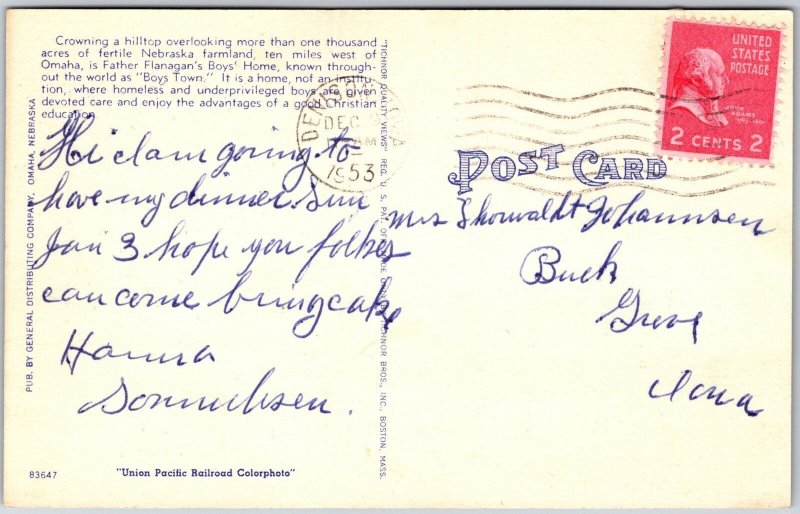 Crowning a hilltop overlooking more than one thousand
acres of fertile Nebraska farmland, ten miles west of
Omaha, is Father Flanagan's Boys' Home, known through-
out the world as "Boys Town." It is a home, not an institu-
tion, where homeless and underprivileged boys are given
devoted care and enjoy the advantages of a good Christian
education.
Hi dam going to
have my dinner Sun
Jan 3 hope you folkes
can come bring cake
Hanna
PUB. BY GENERAL DISTRIBUTING COMPANY, OMAHA, NEBRASKA
83647
"Union Pacific Railroad Colorphoto"
"TICHNOR QUALITY VIEWS" REG. U. S. PAT. OFF. BROS., INC., BOSTON, MASS.
DEC
1953
UNITED
STATES
POSTAGE
JOHN
ADAMS
2 CENTS 2
POST CARD
Mrs Thorwaldt Johannsen
Buck
Grove
Iowa